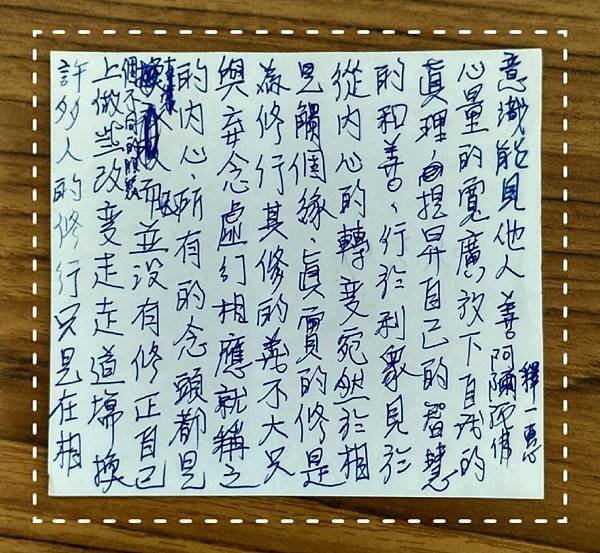 許多人的修行只是在相
上做些改變走走道場換
個不同的服裝
而並沒有修正自己
的內心、所有的念頭都是
與妄念虛幻相應就稱之
為修行其修的善不大只
是觸個緣、真實的修是
從內心的轉變宛然於相
的和善、行於利眾見於
真理、提昇自己的智慧
心量的寬廣放下自我的
意識能見他人善阿彌陀佛
釋一惠